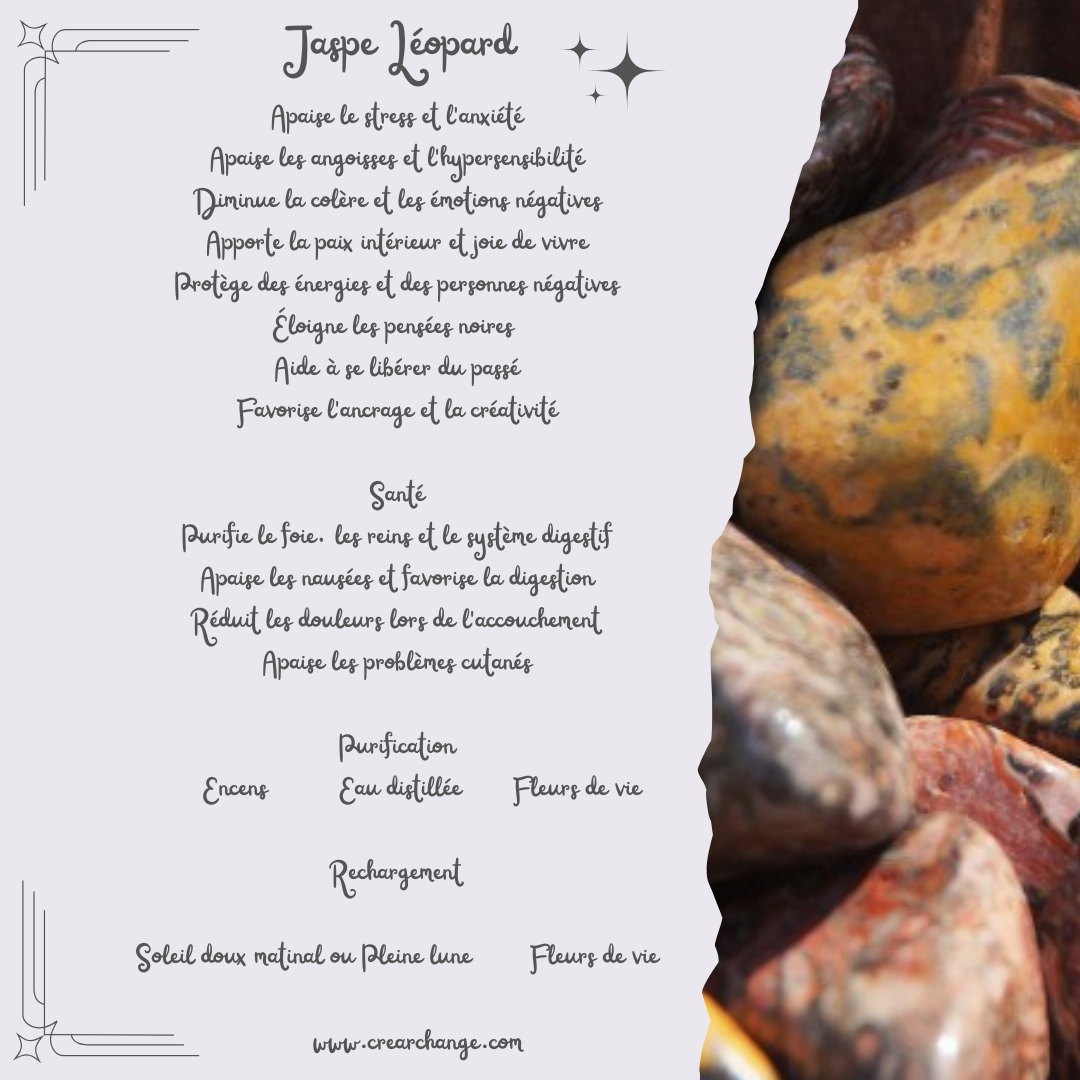 Jaspe Léopard
Apaise le stress et l'anxiété
Apaise les angoisses et l'hypersensibilité
Diminue la colère et les émotions négatives
Apporte la paix intérieur et joie de vivre
Protège des énergies et des personnes négatives
Éloigne les pensées noires
Aide à se libérer du passé
Favorise l'ancrage et la créativité
Santé
Purifie le foie. les reins et le système digestif
Apaise les nausées et favorise la digestion
Réduit les douleurs lors de l'accouchement
Apaise les problèmes cutanés
Purification
Encens Eau distillée Fleurs de vie
Rechargement
Soleil doux matinal ou Pleine lune Fleurs de vie
www.crearchange.com